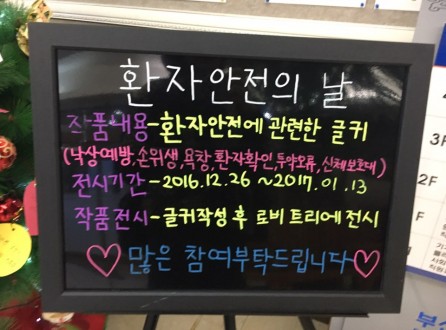 환자안전의 날
작품내용-환자안전에 관련한 글귀
(낙상예방,손위생,욕창,환자확인,투약오류,신체보호대)
전시기간-2016.12.26~2017.01.13
작품전시-글귀작성 후 로비 트리에 전시
♡많은 참여부탁드립니다♡